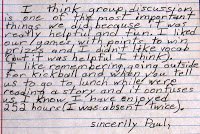 I think group discussion
is one of the most important
things we did because it was
really helpful and fun. I liked
our games with points to win
prices and I didn't like vocab
(but it was helpful I think).
I like remembering going outside
for kickball and when you tell
us to go to lunch while we're
reading a story and it confuses
us. I know I have enjoyed
252 hours (I was absent twice).
Sincerlly Paul,